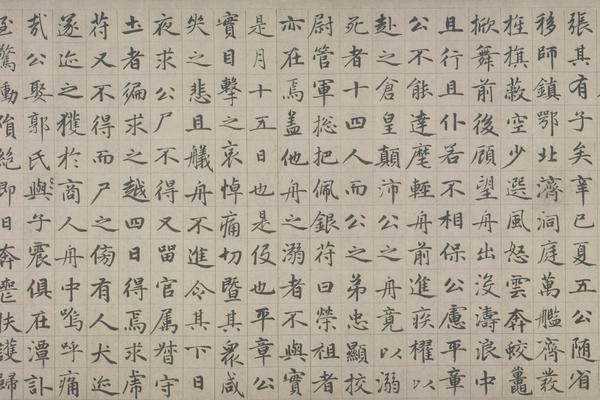 張其有子矣辛巳夏五公随省
移師鎮鄂北濟洞庭萬艦齊發
旌旗蔽空少選風怒雲奔蛟鼉
掀舞前後顧望舟出沒濤浪中
且行且仆若不相保公慮平章
公不能達麾輕舟前進疾櫂以
赴之倉皇顛沛公之舟竟以溺
死者十四人而公之弟忠顯校
尉管軍総把佩銀苻曰榮祖者
亦在焉盖他舟之溺者不與實
是月十五日也是伇也平章公
實目擊之哀悼痛切暨其衆咸
哭之悲且艤舟不進令其下日
夜求公尸不得又留官属督守
土者徧求之越四日得焉求虎
苻又不得而尸之傍有人犬迹
遂迹之獲於商人舟中嗚呼痛
哉公娶郭氏與午震俱在潭訃
至驚慟隕絶即日奔赴扶護歸